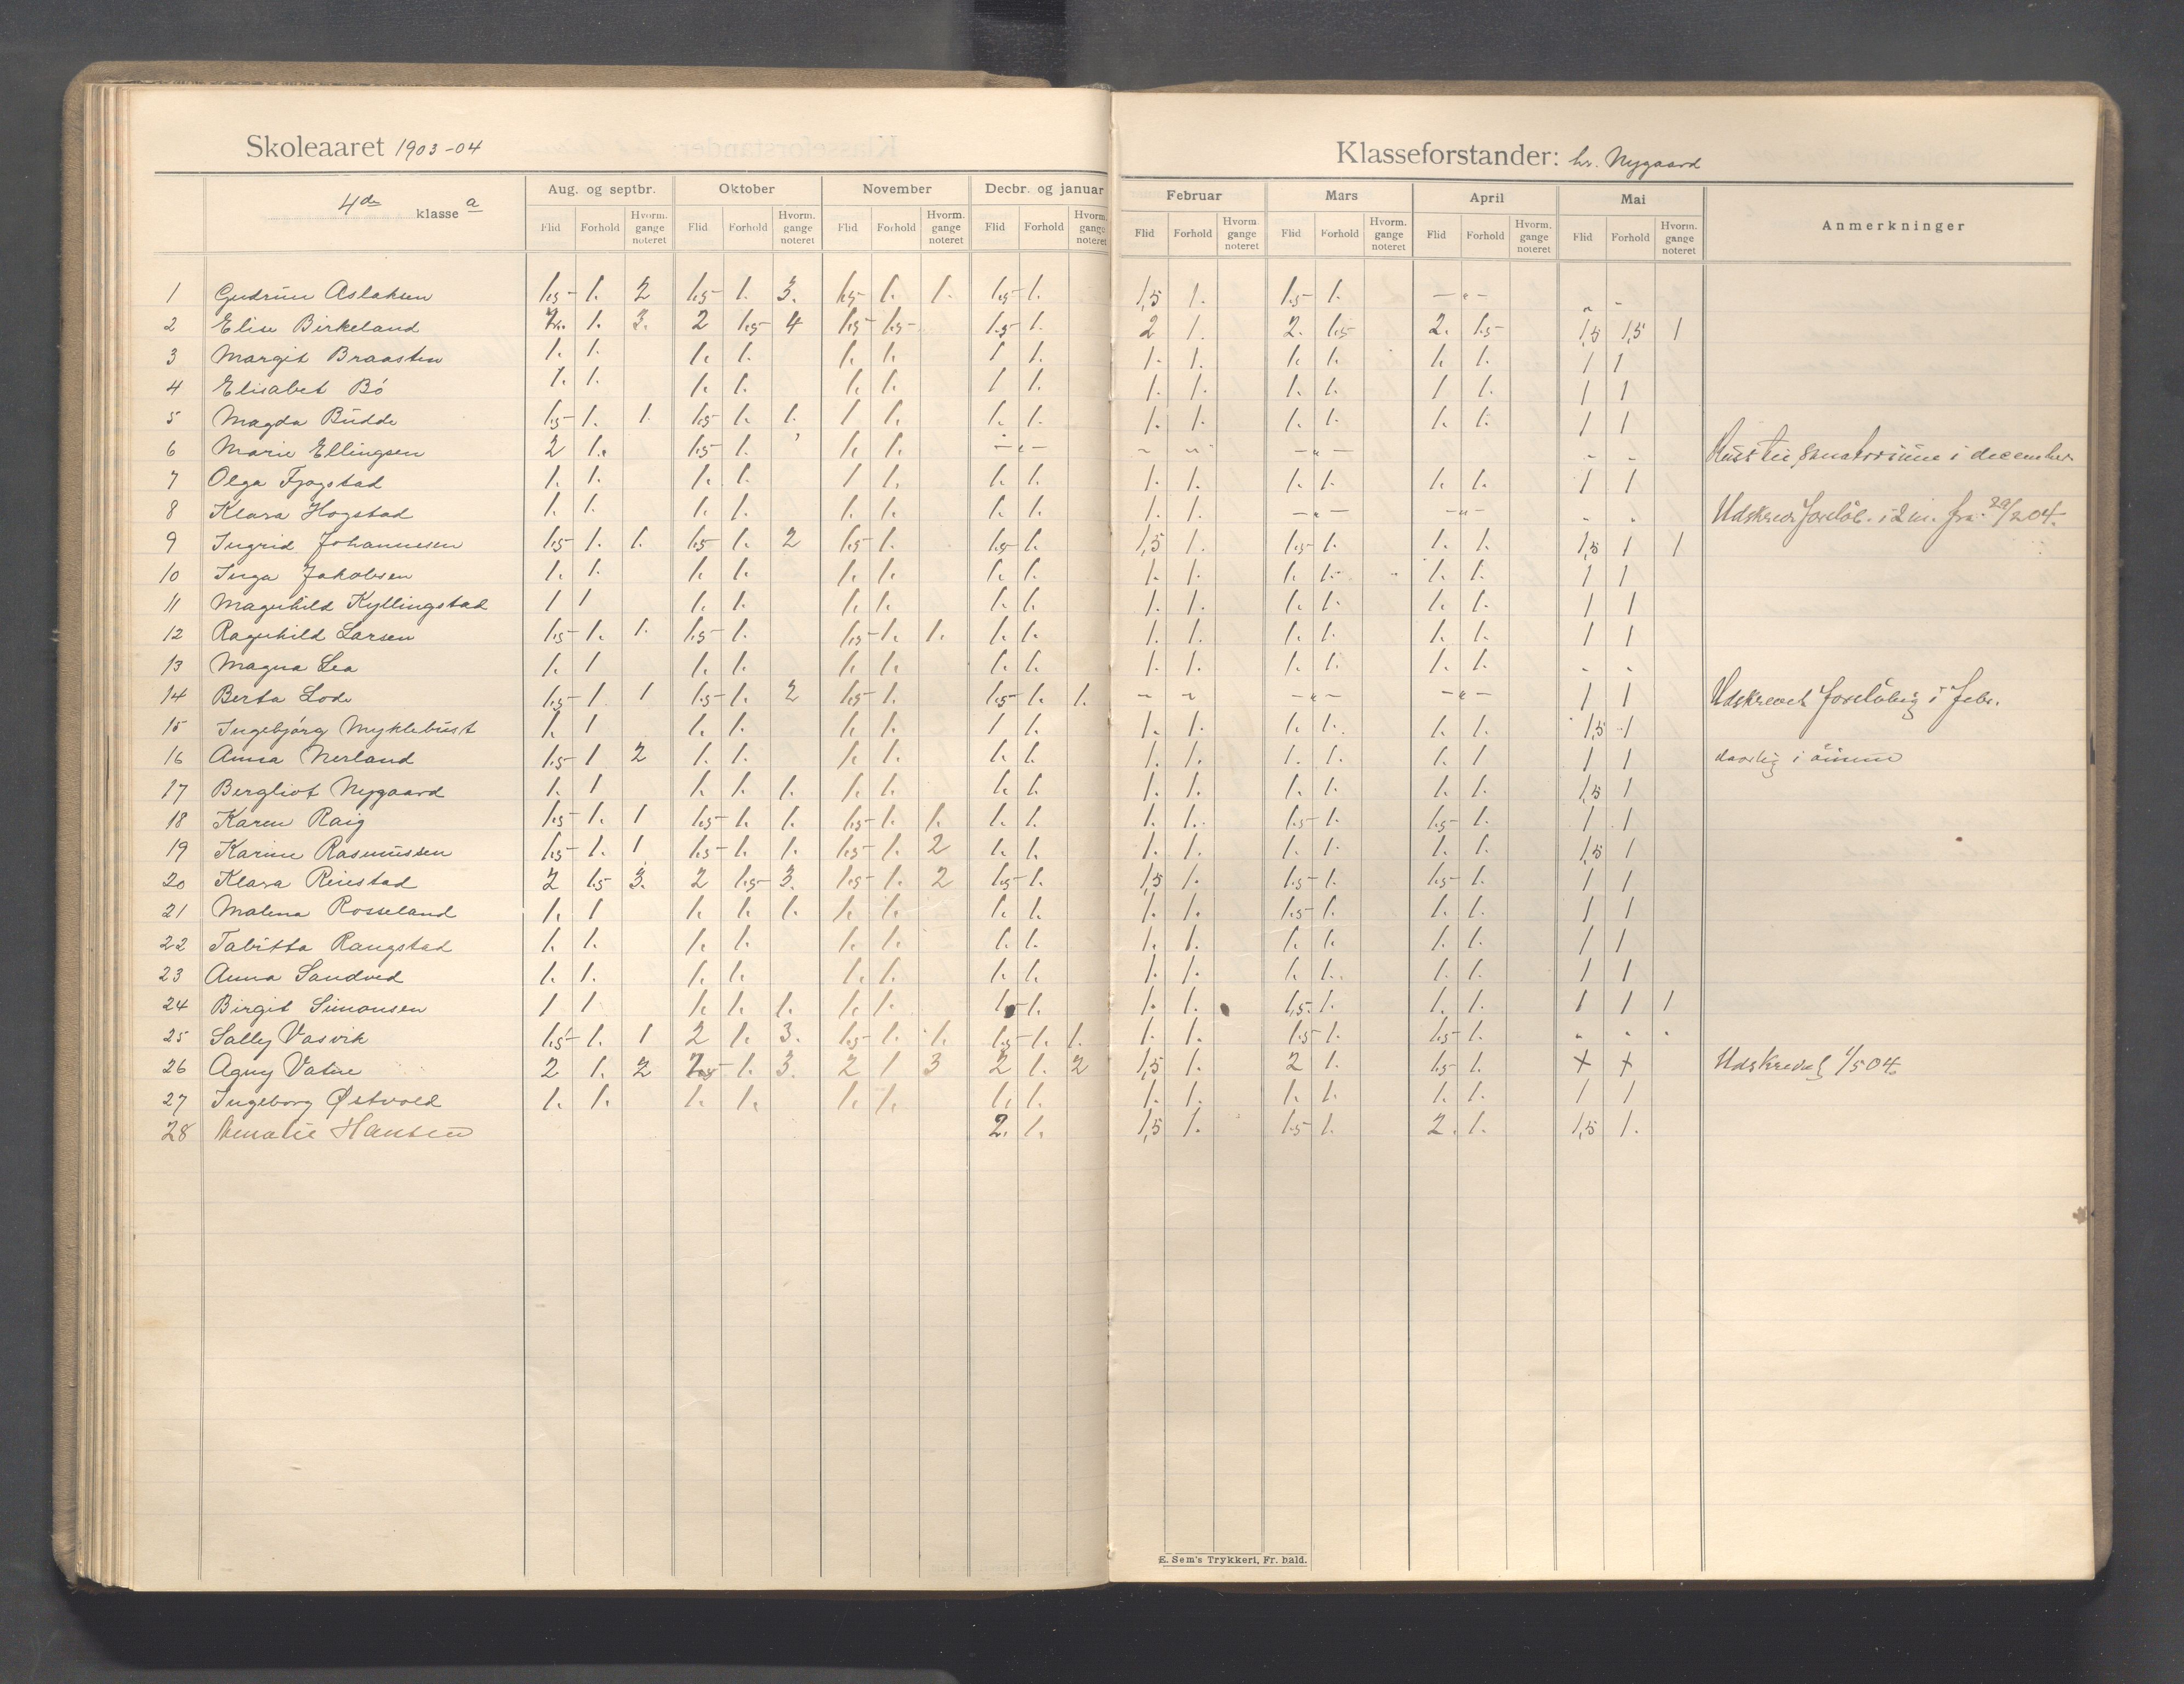 Skoleaaret 1903-04
Klasseforstander: hr. Nygaard
4de klasse a
Aug. og septbr. Oktober November Decbr. og januar Februar Mars April Mai Anmerkninger
Flid Forhold Hvorm. gange noteret Flid Forhold Hvorm. gange noteret Flid Forhold Hvorm. gange noteret Flid Forhold Hvorm. gange noteret Flid Forhold Hvorm. gange noteret Flid Forhold Hvorm. gange noteret Flid Forhold Hvorm. gange noteret Flid Forhold Hvorm. gange noteret
1 Gudrun Aslaksen 1.5 1. 2 1.5 1. 3. 1.5 1. 1. 1.5 1. 1,5 1. 1.5 1. — " — " "
2 Elise Birkeland 1. 3. 2 1.5 4 1.5 1.5 1.5 1. 2 1. 2. 1.5 2. 1.5 1,5 1,5 1
3 Margit Braasten 1. 1. 1. 1. 1. 1. 1 1. 1. 1. 1. 1. 1. 1. 1 1
4 Elisabet Bö 1. 1. 1. 1. 1. 1. 1 1. 1. 1. 1. 1. 1 1. 1 1
5 Magda Budde 1.5 1. 1. 1.5 1. 1. 1 1. 1. 1. 1. 1. 1. 1. 1. 1. 1 1
6 Marie Ellingsen 2 1. 1.5 1. 1. 1. — " — " " — " — " " i december
7 Olga Fjogstad 1. 1. 1. 1. 1 1. 1. 1. 1. 1. 1. 1. 1. 1. 1 1
8 Klara Hogstad 1. 1. 1. 1. 1. 1. 1. 1. 1. 1. — " — — " — " " Udskrevet foreløb. i 2 m. fra 29/2 04.
9 Ingrid Johannesen 1.5 1. 1. 1.5 1. 2 1.5 1. 1.5 1. 1,5 1. 1.5 1. 1. 1. 1,5 1 1
10 Inga Jakobsen 1. 1. 1. 1. 1. 1. 1. 1. 1. 1. 1. 1. 1. 1. 1 1
11 Magnhild Kyllingstad 1 1 1. 1. 1. 1. 1. 1. 1. 1. 1. 1. 1. 1. 1 1
12 Ragnhild Larsen 1.5 1. 1. 1.5 1. 1.5 1. 1. 1. 1. 1. 1. 1. 1. 1. 1. 1 1
13 Magna Lea 1. 1 1. 1. 1. 1. 1. 1. 1. 1. 1. 1. 1. 1. " "
14 Berta Lode 1.5 1 1 1.5 1. 2 1.5 1. 1.5 1. 1. " " — " — — " — 1 1 Udskrevet foreløbig i febr.
15 Ingebjörg Myklebust 1. 1 1. 1. 1. 1. 1 1. 1. 1. 1. 1. 1. 1. 1,5 1
16 Anna Nerland 1.5 1 2 1. 1. 1. 1. 1. 1. 1. 1. 1. 1. 1. 1 1 1 daarlig i
17 Bergliot Nygaard 1. 1 1. 1. 1. 1. 1. 1. 1. 1. 1. 1. 1. 1. 1. 1,5 1
18 Karen Raig 1.5 1. 1 1.5 1. 1. 1.5 1. 1. 1. 1. 1. 1. 1.5 1. 1.5 1. 1 1
19 Karine Rasmussen 1.5 1. 1 1.5 1. 1. 1.5 1. 2 1. 1. 1. 1. 1. 1. 1. 1. 1,5 1
20 Klara Rinstad 2 1.5 3. 2 1.5 3. 1.5 1. 2 1.5 1. 1,5 1. 1.5 1. 1.5 1. 1 1
21 Malena Rosseland 1. 1 1. 1. 1. 1. 1. 1. 1. 1. 1. 1.5 1. 1. 1. 1 1
22 Tabitta Rangstad 1. 1. 1. 1. 1. 1. 1. 1. 1. 1. 1. 1. 1. 1. 1 1
23 Anna Sandved 1. 1. 1. 1. 1. 1. 1. 1. 1. 1. 1. 1. 1. 1. 1 1
24 Birgit Simonsen 1 1 1. 1. 1. 1. 1. 1.5 1. 1. 1. 1.5. 1. 1. 1. 1 1 1
25 Sally Vasvik 1.5 1. 1 2 1. 3. 1.5 1. 1. 1.5 1. 1. 1. 1. 1.5 1. 1.5 1. " " "
26 Agny Vatne 2 1. 2 1. 3. 2 1 3 2 1. 2 1,5 1. 2 1. 1.5 1. + + Udskrevet 1/5 04.
27 Ingeborg Østvold 1. 1. 1. 1. 1. 1. 1. 1. 1. 1. 1. 1. 1. 1. 1 1
28 Amalie Hansen 2. 1. 1,5 1. 1.5 1. 2. 1. 1,5 1.
E. Sem's Trykkeri, Fr. hald.